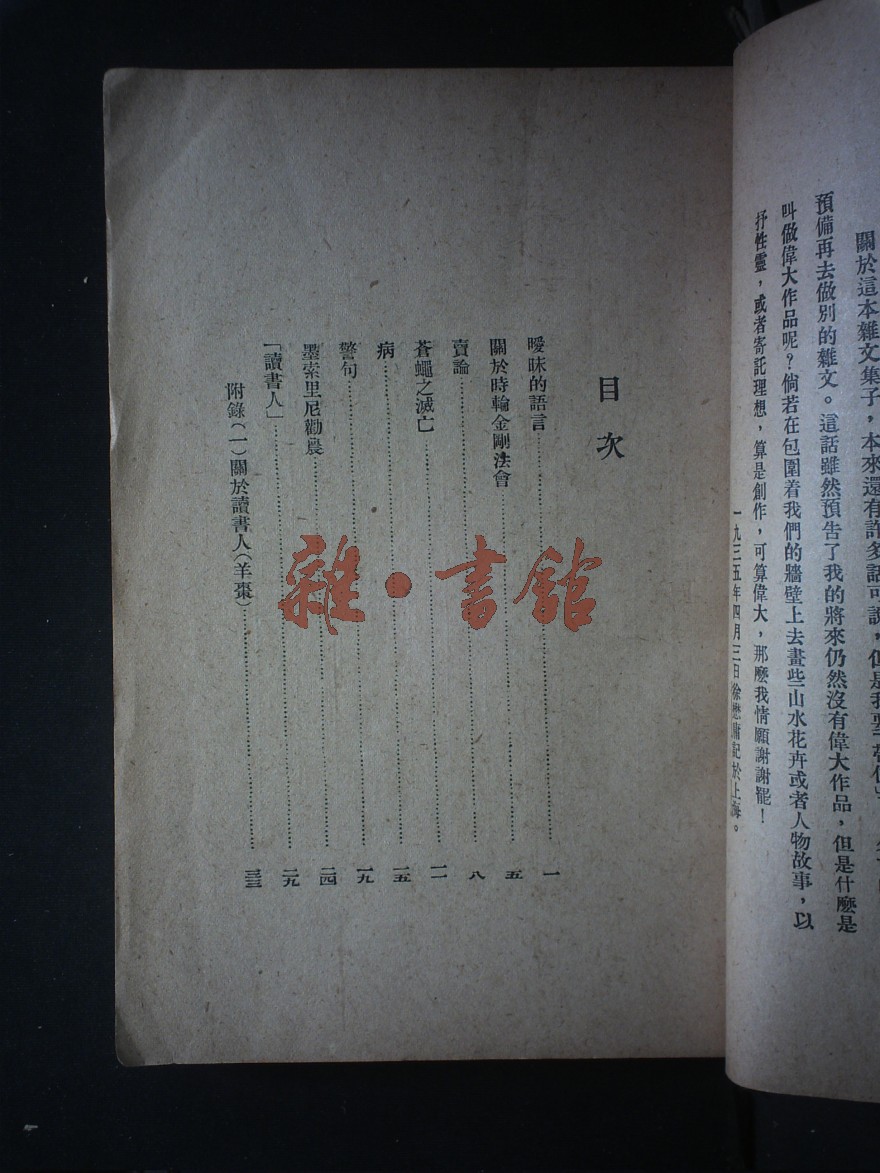 關於這本雜文集子，本來還有許多話可說，但是我
預備再去做別的雜文。這話雖然預告了我的將來仍然沒有偉大作品，但是什麼是
叫做偉大作品呢？倘若在包圍着我們的牆壁上去畫些山水花卉或者人物故事，以
抒性靈，或者寄託理想，算是創作，可算偉大，那麼我情願謝謝罷！
一九三五年四月三日徐懋庸記於上海。
目次
曖昧的語言 一
關於時輪金剛法會 五
賣論 八
蒼蠅之滅亡 一一
病 一五
警句 一九
墨索里尼勸農 二四
「讀書人」 二九
附錄（一）關於讀書人（羊棗） 三三
雜·書館